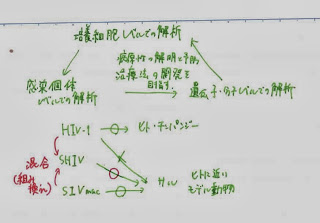 培養細胞レベルでの解析
病原性の解明と予防
治療法の開発を
目指す
感染個体
レベルでの解析
遺伝子・分子レベルでの解析
HIV-1
ヒト・チンパンジー
混合
(組み
換え)
SHIV
SIVmac
ヒトに近い
モデル動物